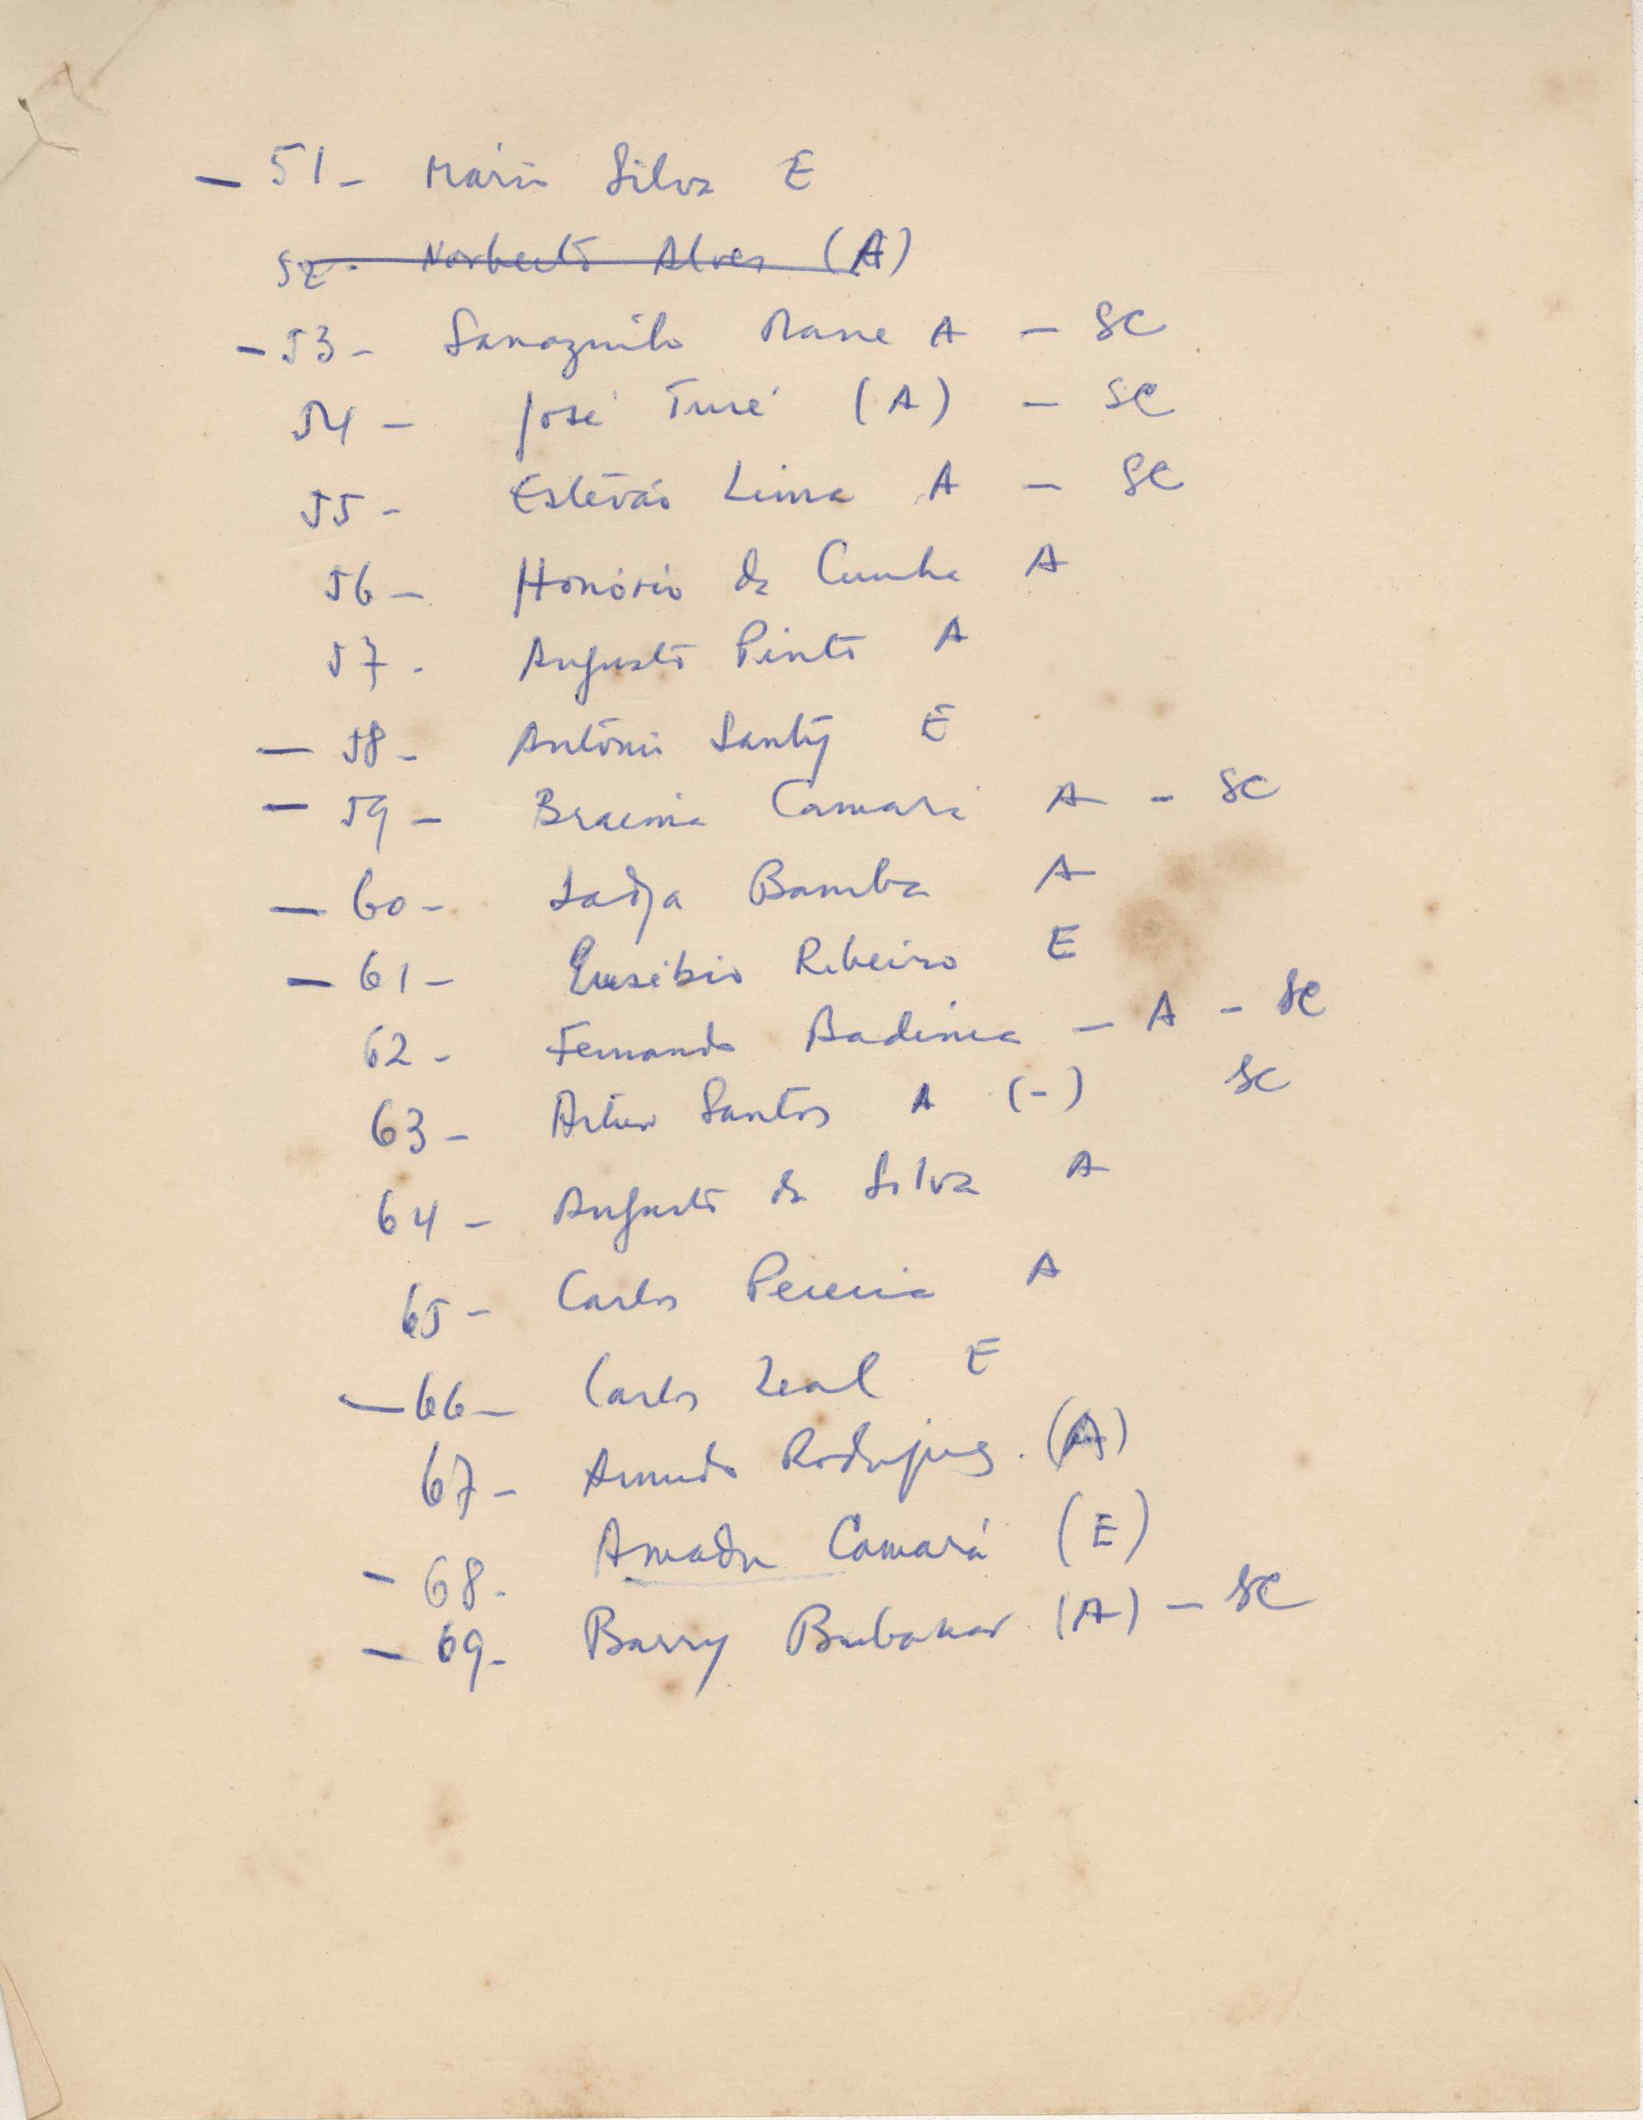 - 51 - Mário Silva E
52 - Norberto Alves (A)
- 53 - Mane A - SC
54 - José Turé (A) - SC
55 - Estêvão Lima A - SC
56 - Honório da Cunha A
57 - Augusto Pinto A
- 58 - António Santy E
- 59 - Braima Camará A - SC
- 60 - Ladja Bamba A
- 61 - Eusébio Ribeiro E
62 - Fernando Badinca - A - SC
63 - Artur Santos A (-) SC
64 - Augusto da Silva A
65 - Carlos Pereira A
- 66 - Carlos Leal E
67 - Armando Rodrigues (A)
- 68 - Amadu Camará (E)
- 69 - Barry Bubakar (A) - SC